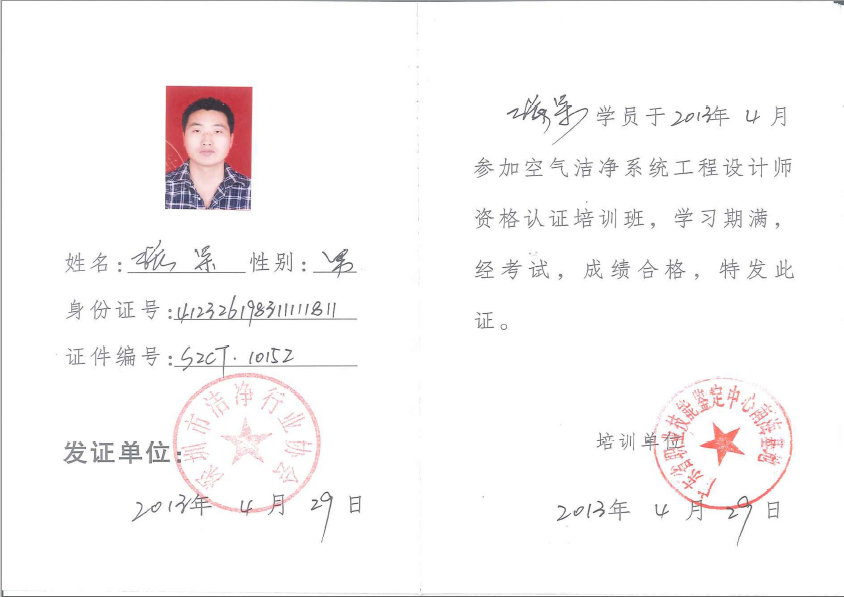 姓名： 性别：男
身份证号：412326198311111811
证件编号：SZCT·10152
发证单位：
深圳市洁净行业协会
2013年 4 月 29 日
学员于2013年 4 月
参加空气洁净系统工程设计师
资格认证培训班，学习期满，
经考试，成绩合格，特发此
证。
培训单位
广东省职业技能鉴定中心南海基地
2013年 4 月 29 日